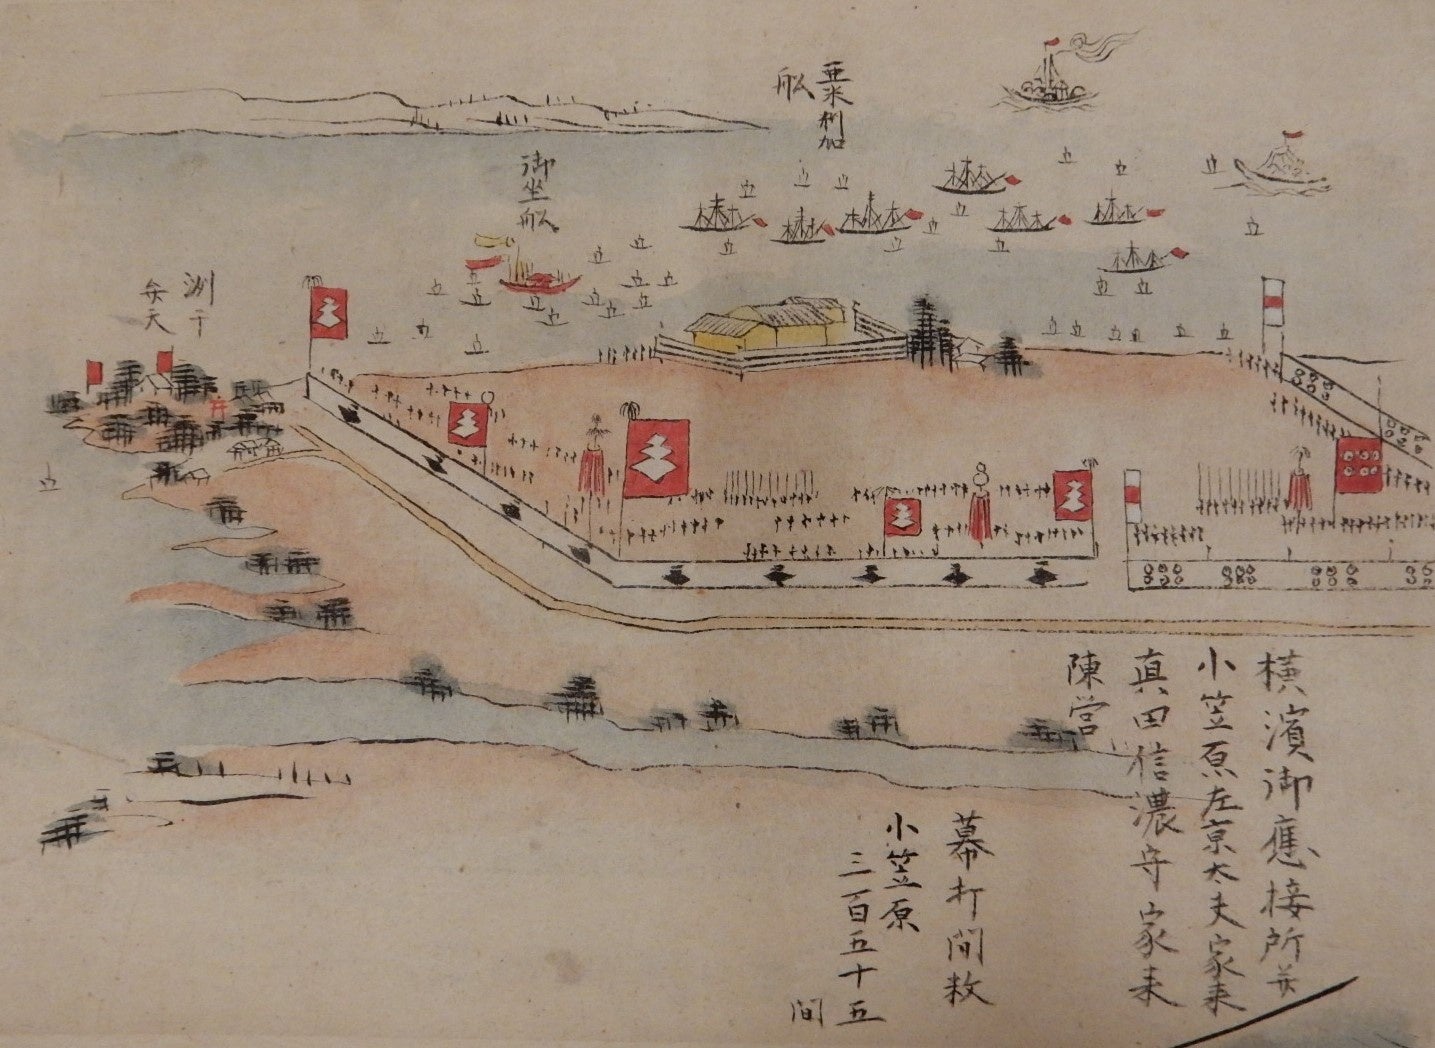 横濱御應接所并
小笠原左京太夫家来
真田信濃守家来
陳営
幕打間数
小笠原
三百五十五
間
亜米利加
舩
御坐舩
洲干
弁天